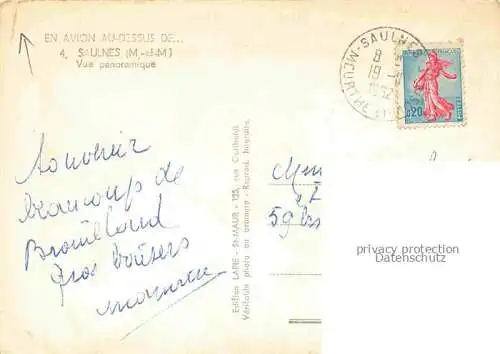 EN AVION AU-DESSUS DE...
4. SAULNES (M.-et-M.)
Vue panoramique
SAULNES
MEURTHE-ET-MOSELLE
8 H
19 -
1962
0,20
Souvenir
beaucoup de
Brouillard
Gros baisers
Edition LAPIE - St-MAUR - 125, rue Garibaldi
Véritable photo au bromure - Reprod. Interdite
59 bis
privacy protection
Datenschutz